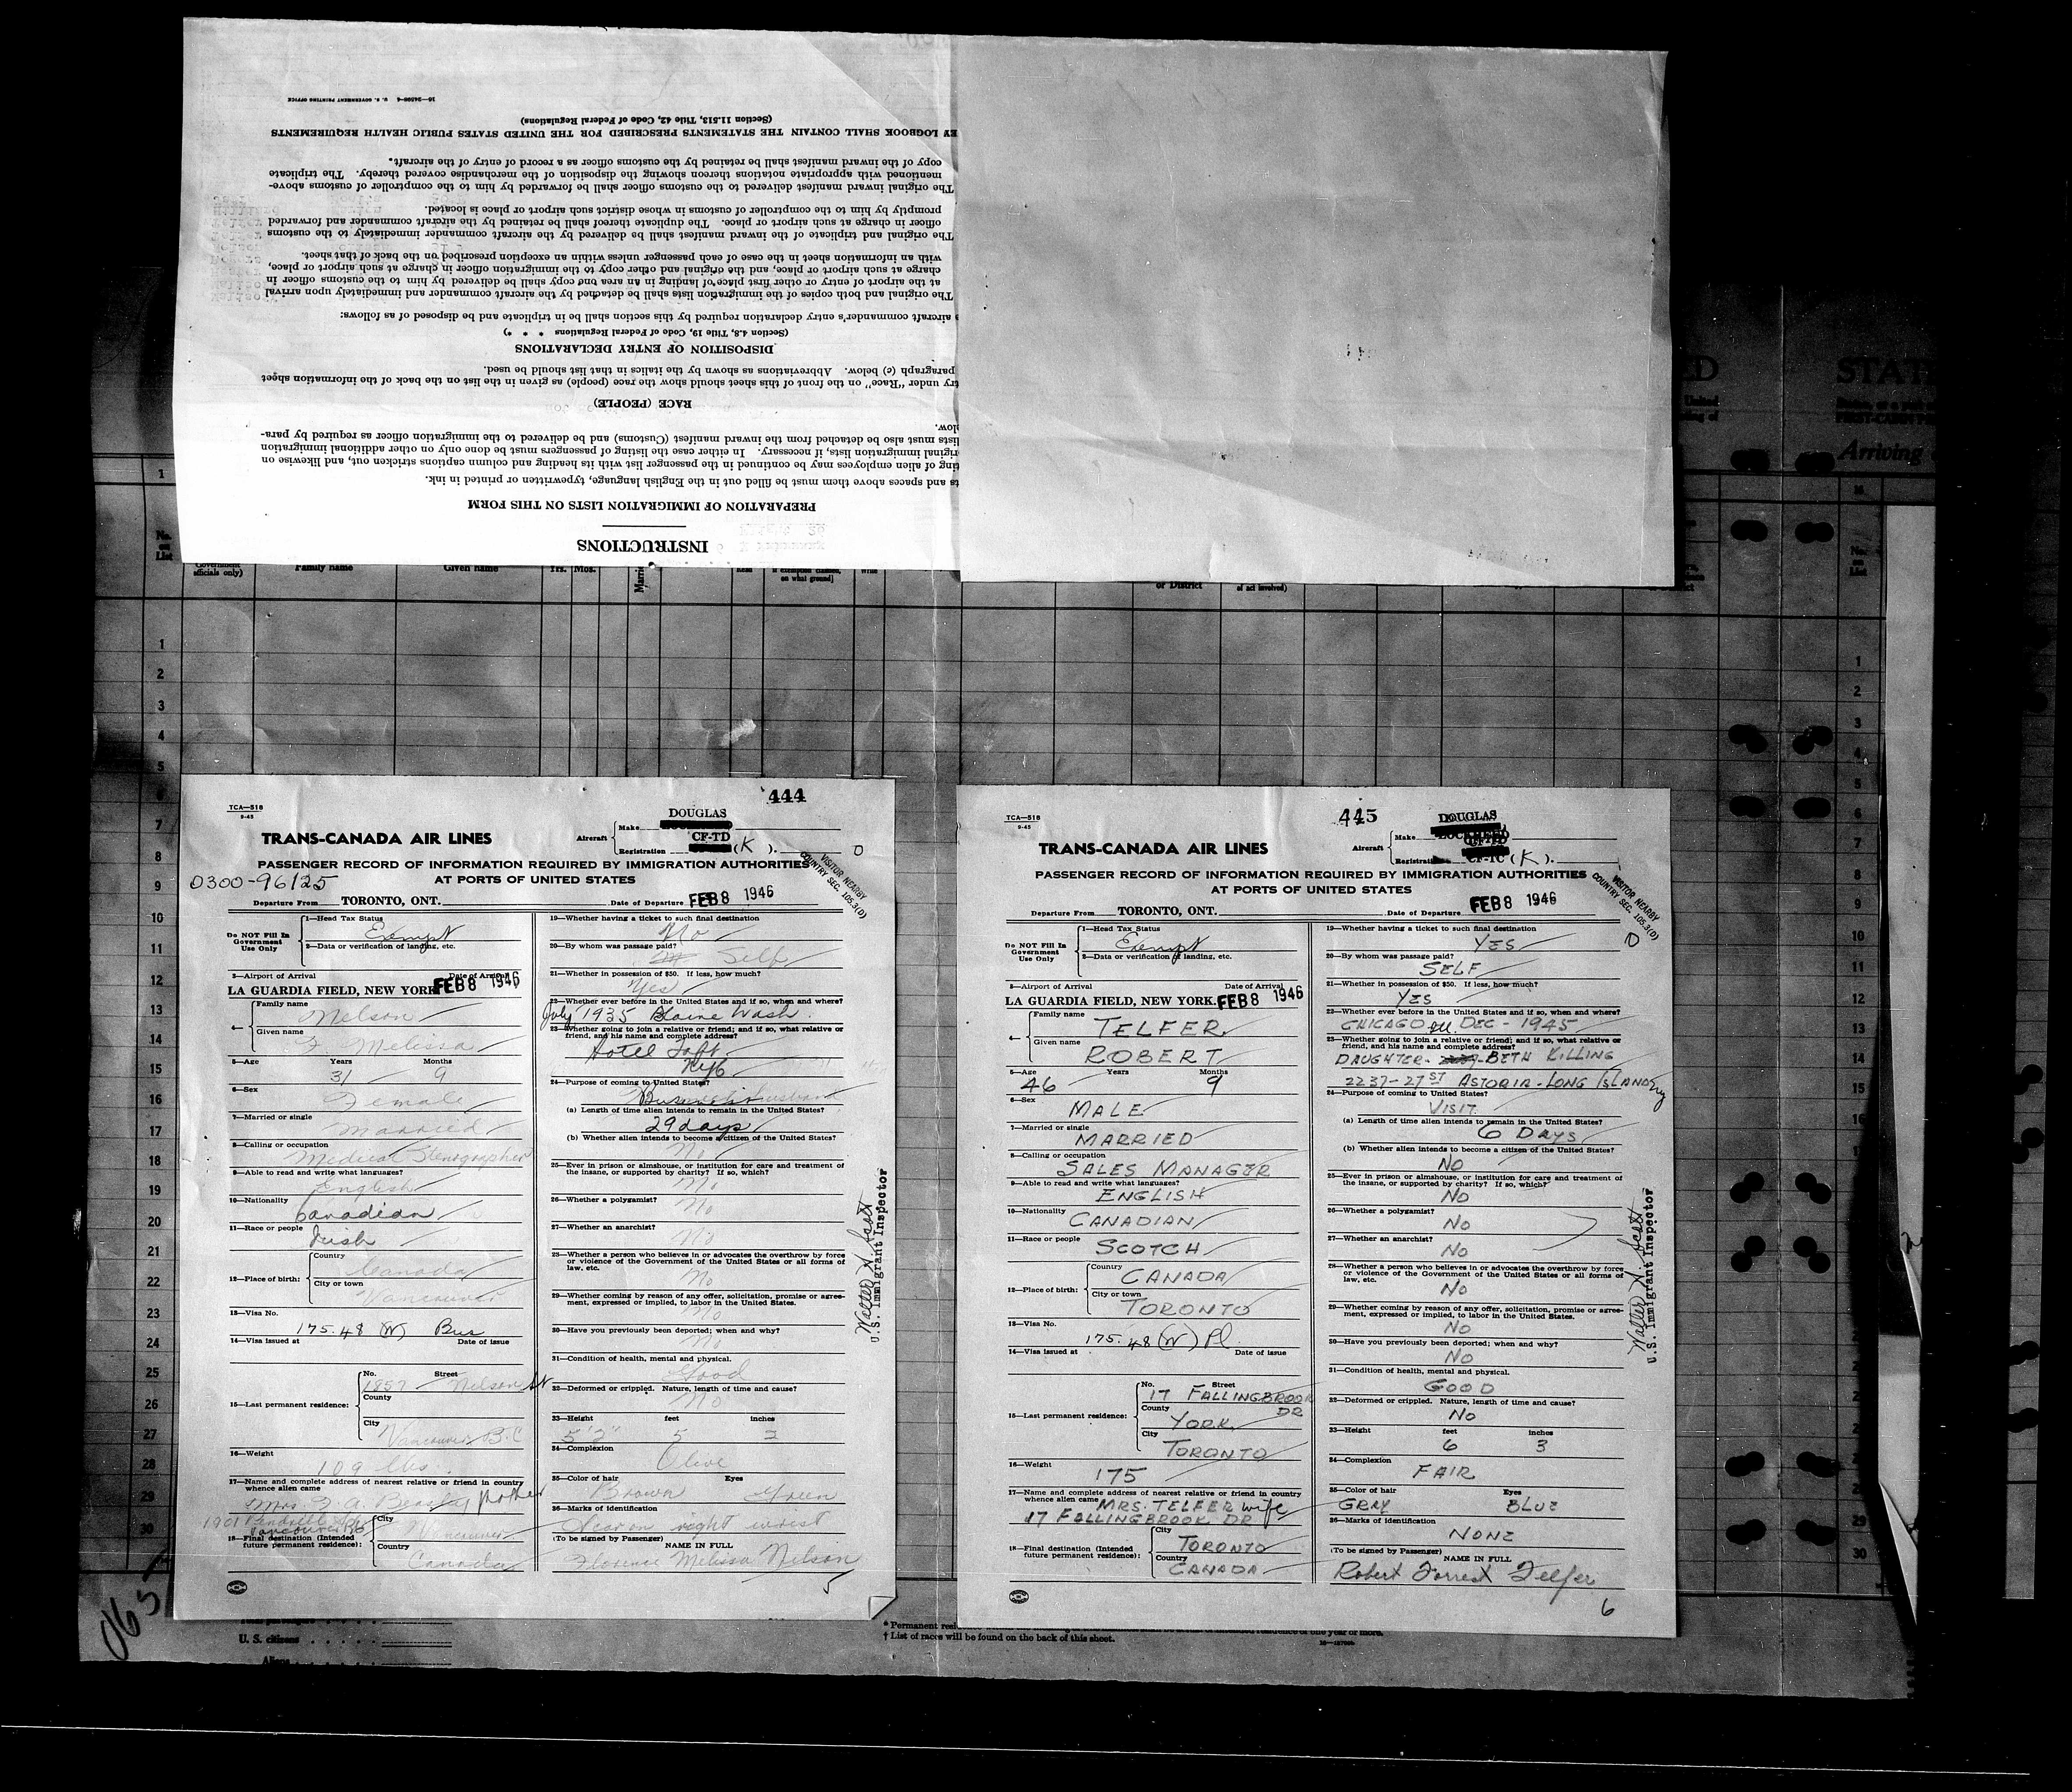 INSTRUCTIONS
PREPARATION OF IMMIGRATION LISTS ON THIS FORM
ts and spaces above them must be filled out in the English language, typewritten or printed in ink.
ting of alien employees may be continued in the passenger list with its heading and column captions stricken out, and likewise on
riginal immigration lists, if necessary. In either case the listing of passengers must be done only on other additional immigration
lists must also be detached from the inward manifest (Customs) and be delivered to the immigration officer as required by para-
low.
RACE (PEOPLE)
try under "Race" on the front of this sheet should show the race (people) as given in the list on the back of the information sheet
paragraph (c) below. Abbreviations as shown by the italics in that list should be used.
DISPOSITION OF ENTRY DECLARATIONS
(Section 4.8, Title 19, Code of Federal Regulations * * *)
e aircraft commander's entry declaration required by this section shall be in triplicate and be disposed of as follows:
The original and both copies of the immigration lists shall be detached by the aircraft commander and immediately upon arrival
at the airport of entry or other first place of landing in an area one copy shall be delivered by him to the customs officer in
charge at such airport or place, and the original and other copy to the immigration officer in charge at such airport or place,
with an information sheet in the case of each passenger unless within an exception prescribed on the back of that sheet.
The original and triplicate of the inward manifest shall be delivered by the aircraft commander immediately to the customs
officer in charge at such airport or place. The duplicate thereof shall be retained by the aircraft commander and forwarded
promptly by him to the comptroller of customs in whose district such airport or place is located.
The original inward manifest delivered to the customs officer shall be forwarded by him to the comptroller of customs above-
mentioned with appropriate notations thereon showing the disposition of the merchandise covered thereby. The triplicate
copy of the inward manifest shall be retained by the customs officer as a record of entry of the aircraft.
EY LOGBOOK SHALL CONTAIN THE STATEMENTS PRESCRIBED FOR THE UNITED STATES PUBLIC HEALTH REQUIREMENTS
(Section 11.513, Title 42, Code of Federal Regulations)
U. S. GOVERNMENT PRINTING OFFICE
STAT
Arriving
No. on List
officials only)
Family name
Given name
Yrs. Mos.
on what ground]
or District
of act involved)
No. on List
TCA—518
9-45
444
TRANS-CANADA AIR LINES
DOUGLAS
Aircraft Make
CF-TD
Registration (K).
PASSENGER RECORD OF INFORMATION REQUIRED BY IMMIGRATION AUTHORITIES
AT PORTS OF UNITED STATES
VISITOR NEARBY
COUNTRY SEC. 105.3(D)
0300-96125
Departure From TORONTO, ONT. Date of Departure FEB 8 1946
Do NOT Fill In Government Use Only
1—Head Tax Status
Exempt
2—Data or verification of landing, etc.
3—Airport of Arrival Date of Arrival
LA GUARDIA FIELD, NEW YORK FEB 8 1946
4— Family name
Nelson
Given name
F Melissa
5—Age Years Months
31 9
6—Sex
Female
7—Married or single
Married
8—Calling or occupation
Medical Stenographer
9—Able to read and write what languages?
English
10—Nationality
Canadian
11—Race or people
Irish
12—Place of birth: Country
Canada
City or town
Vancouver
13—Visa No.
175.48 (W) Bus
14—Visa issued at Date of issue
15—Last permanent residence: No. Street
1857 Nelson St
County
City
Vancouver B.C
16—Weight
109 lbs.
17—Name and complete address of nearest relative or friend in country
whence alien came
Mrs F. A. Beasley mother
1901 Pendrell St
Vancouver
18—Final destination (Intended future permanent residence): City
Vancouver
Country
Canada
19—Whether having a ticket to such final destination
No
20—By whom was passage paid?
Self
21—Whether in possession of $50. If less, how much?
Yes
22—Whether ever before in the United States and if so, when and where?
July 1935 Blaine Wash.
23—Whether going to join a relative or friend; and if so, what relative or
friend, and his name and complete address?
Hotel Taft
Nyc
24—Purpose of coming to United States?
(a) Length of time alien intends to remain in the United States?
29 days
(b) Whether alien intends to become a citizen of the United States?
No
25—Ever in prison or almshouse, or institution for care and treatment of
the insane, or supported by charity? If so, which?
No
26—Whether a polygamist?
No
27—Whether an anarchist?
No
28—Whether a person who believes in or advocates the overthrow by force
or violence of the Government of the United States or all forms of
law, etc.
No
29—Whether coming by reason of any offer, solicitation, promise or agree-
ment, expressed or implied, to labor in the United States.
No
30—Have you previously been deported; when and why?
No
31—Condition of health, mental and physical.
Good
32—Deformed or crippled. Nature, length of time and cause?
No
33—Height feet inches
5'2" 5 2
34—Complexion
Olive
35—Color of hair Eyes
Brown Green
36—Marks of identification
Scar on right wrist
(To be signed by Passenger) NAME IN FULL
Florence Melissa Nelson
5
Walter N. Scott
U.S. Immigrant Inspector
TCA—518
9-45
445
TRANS-CANADA AIR LINES
DOUGLAS
Aircraft Make
Registration (K).
PASSENGER RECORD OF INFORMATION REQUIRED BY IMMIGRATION AUTHORITIES
AT PORTS OF UNITED STATES
VISITOR NEARBY
COUNTRY SEC. 105.3(D)
Departure From TORONTO, ONT. Date of Departure FEB 8 1946
Do NOT Fill In Government Use Only
1—Head Tax Status
Exempt
2—Data or verification of landing, etc.
3—Airport of Arrival Date of Arrival
LA GUARDIA FIELD, NEW YORK. FEB 8 1946
4— Family name
TELFER
Given name
ROBERT
5—Age Years Months
46 9
6—Sex
MALE
7—Married or single
MARRIED
8—Calling or occupation
SALES MANAGER
9—Able to read and write what languages?
ENGLISH
10—Nationality
CANADIAN
11—Race or people
SCOTCH
12—Place of birth: Country
CANADA
City or town
TORONTO
13—Visa No.
175.48 (W) Pl.
14—Visa issued at Date of issue
15—Last permanent residence: No. Street
17 FALLINGBROOK DR
County
YORK
City
TORONTO
16—Weight
175
17—Name and complete address of nearest relative or friend in country
whence alien came MRS. TELFER wife
17 FALLINGBROOK DR
18—Final destination (Intended future permanent residence): City
TORONTO
Country
CANADA
19—Whether having a ticket to such final destination
YES
20—By whom was passage paid?
SELF
21—Whether in possession of $50. If less, how much?
YES
22—Whether ever before in the United States and if so, when and where?
CHICAGO Ill. DEC - 1945
23—Whether going to join a relative or friend; and if so, what relative or
friend, and his name and complete address?
DAUGHTER - BETH KILLING
2237-27 ST ASTORIA - LONG ISLAND Ny
24—Purpose of coming to United States?
VISIT
(a) Length of time alien intends to remain in the United States?
6 DAYS
(b) Whether alien intends to become a citizen of the United States?
NO
25—Ever in prison or almshouse, or institution for care and treatment of
the insane, or supported by charity? If so, which?
NO
26—Whether a polygamist?
NO
27—Whether an anarchist?
NO
28—Whether a person who believes in or advocates the overthrow by force
or violence of the Government of the United States or all forms of
law, etc.
NO
29—Whether coming by reason of any offer, solicitation, promise or agree-
ment, expressed or implied, to labor in the United States.
NO
30—Have you previously been deported; when and why?
NO
31—Condition of health, mental and physical.
GOOD
32—Deformed or crippled. Nature, length of time and cause?
NO
33—Height feet inches
6 3
34—Complexion
FAIR
35—Color of hair Eyes
GRAY BLUE
36—Marks of identification
NONE
(To be signed by Passenger) NAME IN FULL
Robert Forrest Telfer
6
Walter N. Scott
U.S. Immigrant Inspector
065
U.S. citizens
Aliens
* Permanent resi
† List of races will be found on the back of this sheet.